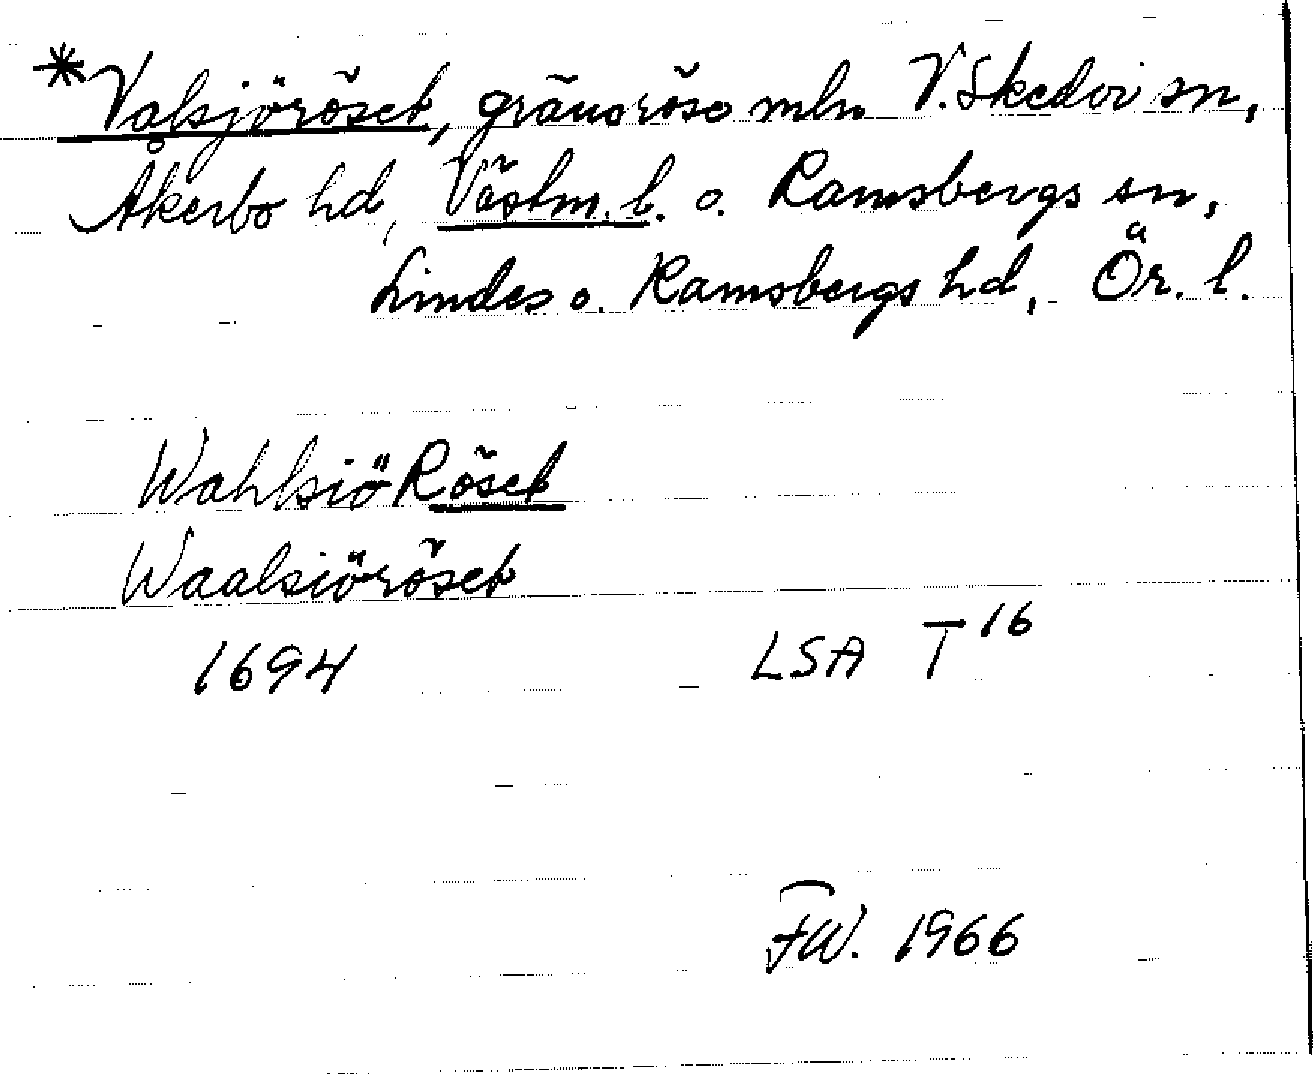 *Valsjöröset, gränsröse mln V. Skedvi sn,
Åkerbo hd, Västm. l. o. Ramsbergs sn,
Lindes o. Ramsbergs hd, Ör. l.
WahlsiöRöset
Waalsiöröset
1694 LSA T 16
FW. 1966